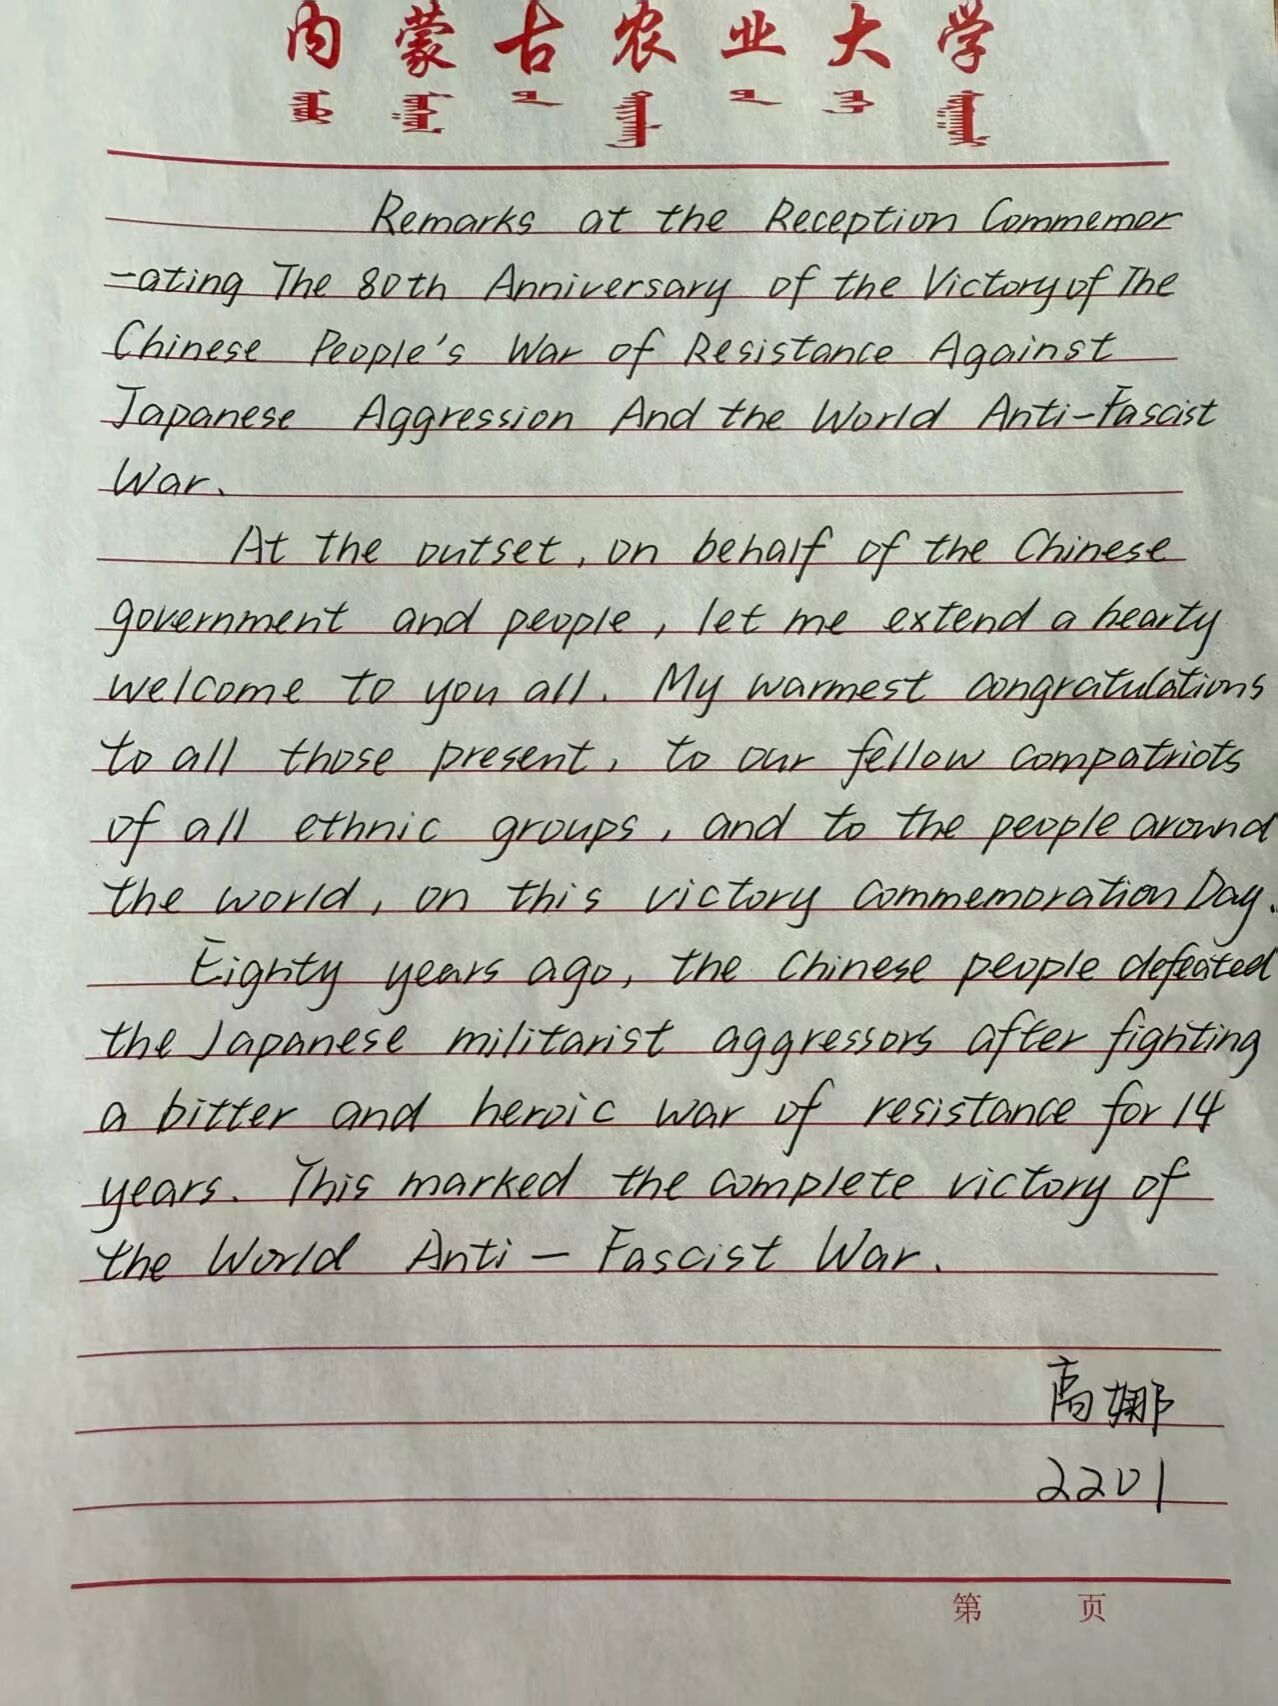 内蒙古农业大学
Remarks at the Reception Commemor
-ating The 80th Anniversary of the Victory of The
Chinese People's War of Resistance Against
Japanese Aggression And the World Anti-Fascist
War.
At the outset, on behalf of the Chinese
government and people, let me extend a hearty
welcome to you all. My warmest congratulations
to all those present, to our fellow compatriots
of all ethnic groups, and to the people around
the world, on this victory commemoration Day.
Eighty years ago, the Chinese people defeated
the Japanese militarist aggressors after fighting
a bitter and heroic war of resistance for 14
years. This marked the complete victory of
the World Anti-Fascist War.
高娜
2201
第 页